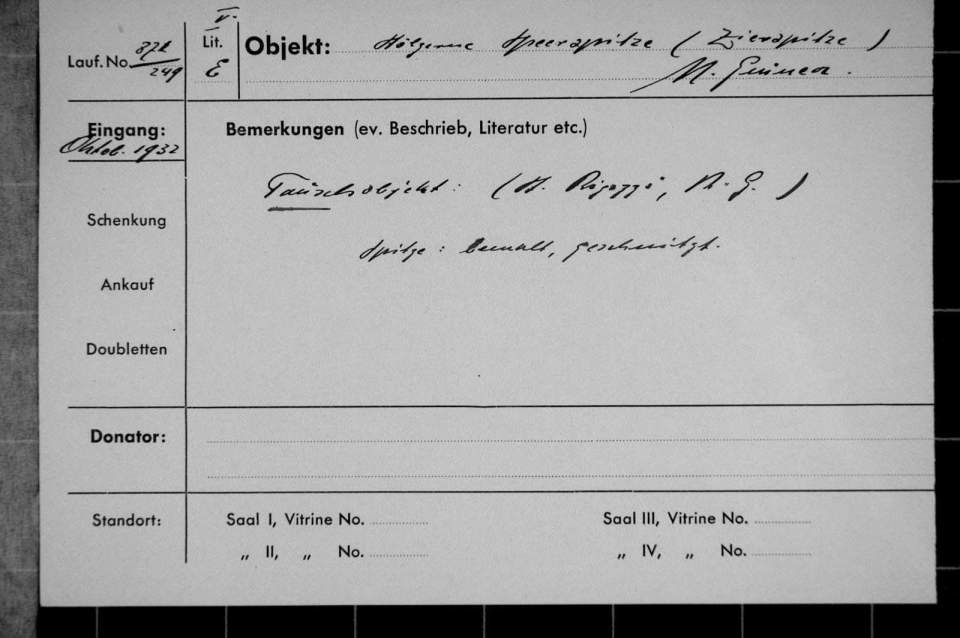 V.
Lauf. No. 872/249
Lit. E
Objekt: Hölzerne Speerspitze (Zierspitze)
N. Guinea.
Eingang:
Oktob. 1932
Bemerkungen (ev. Beschrieb, Literatur etc.)
Tauschobjekt: (H. Rigozzi, N. G.)
Schenkung
Spitze: bemalt, geschnitzt.
Ankauf
Doubletten
Donator:
Standort:
Saal I, Vitrine No.
Saal III, Vitrine No.
„ II, „ No.
„ IV, „ No.